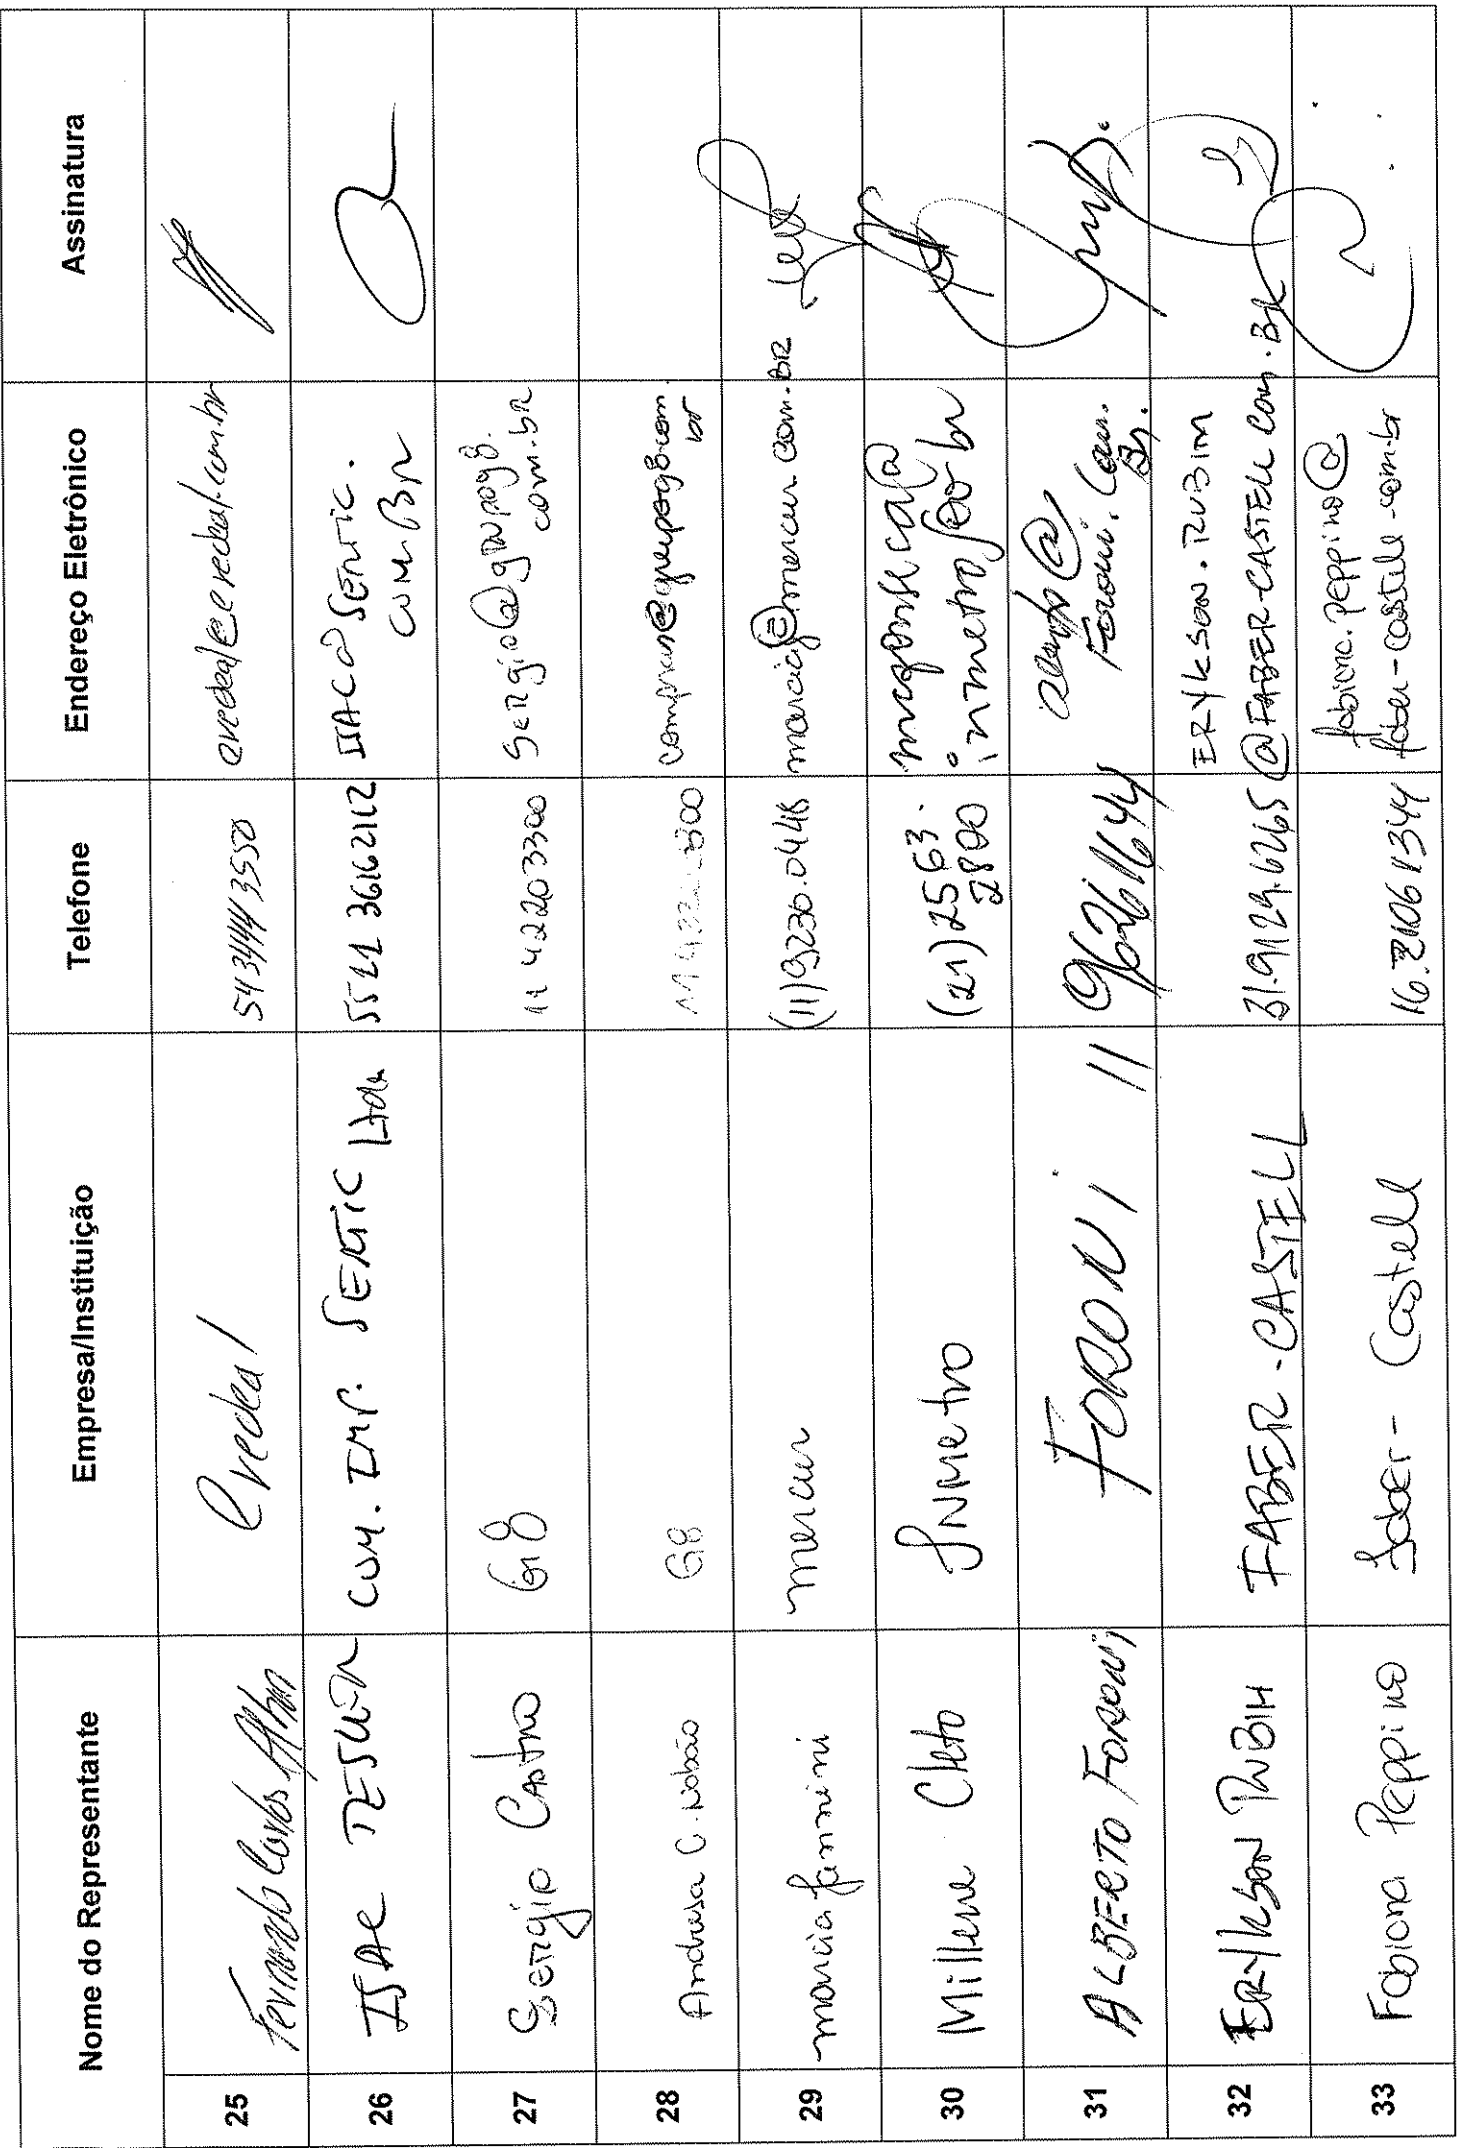 Nome do Representante
Empresa/Instituição
Telefone
Endereço Eletrônico
Assinatura
25
Fernando Carlos
Credeal
54 3444 3550
credeal@credeal.com.br
26
ISAC
COM. IMP. SERTIC Ltda
5511 36162112
ISAC@SERTIC.
COM.Br
27
Sergio Castro
G8
11 42203300
Sergio@grupog8.
com.br
28
Andresa C. Nobrão
G8
compras@grupog8.com.
br
29
marcia fannini
mercur
(11)9230.0448
marcia@mercur.com.BR
30
Millene Cleto
Inmetro
(21)2563.
2800
inmetro.gov.br
31
ALBERTO FORONI
FORONI
11
96261644
Foroni.Com.
Br.
32
ERYKSON RUBIM
FABER-CASTELL
31.9129.6265
ERYKSON.RUBIM
@FABER-CASTELL.COM.BR
33
Fabiana Peppino
Faber-Castell
16.21061344
fabiana.peppino@
faber-castell.com.br